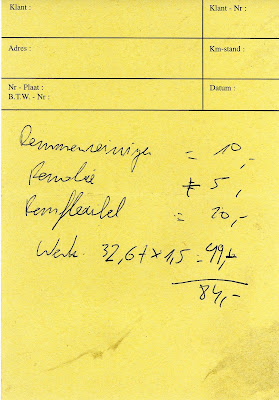 Klant :
Klant - Nr :
Adres :
Km-stand :
Nr - Plaat :
B.T.W. - Nr :
Datum :
Remmenreiniger = 10,-
Remolie = 5,-
Remflexibel = 20,-
Werk 32,67 x 1,5 = 49,-
84,-